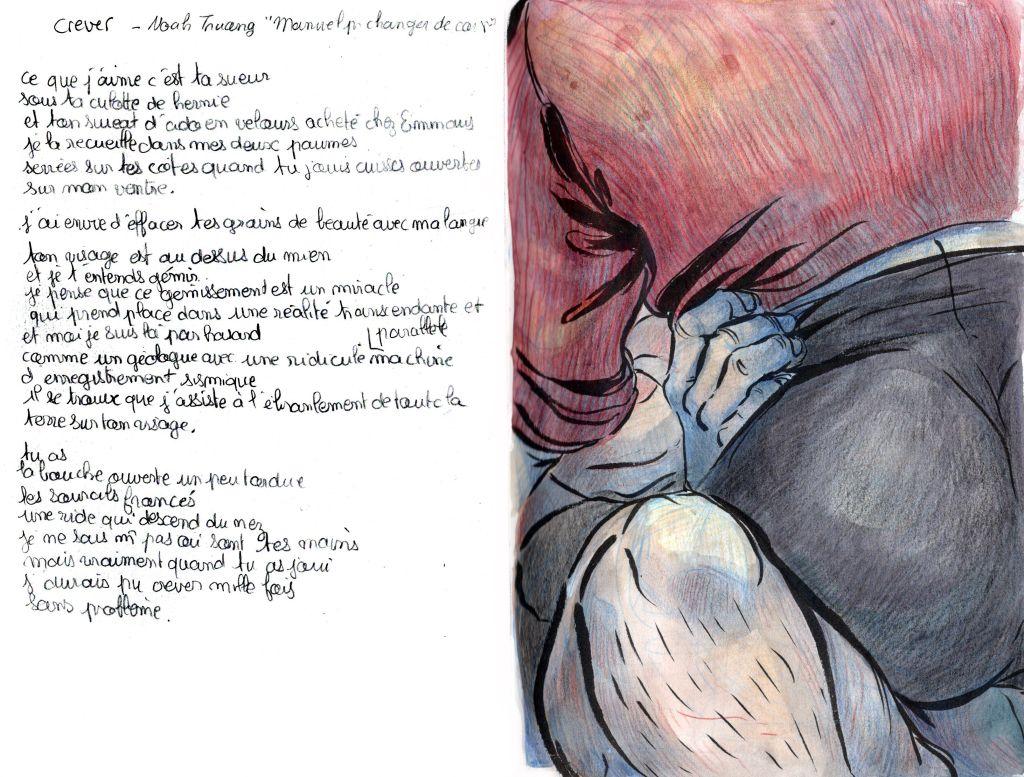 Crever - Noah Truong "Manuel pr changer de corps"
ce que j'aime c'est ta sueur
sous ta culotte de hernie
et ton sweat d'ado en velours acheté chez Emmaus
je la recueille dans mes deux paumes
serrées sur tes côtes quand tu jouis cuisses ouvertes
sur mon ventre.
j'ai envie d'effacer tes grains de beauté avec ma langue
ton visage est au dessus du mien
et je t'entends gémir
je pense que ce gémissement est un miracle
qui prend place dans une réalité transcendante et
parallèle
et moi je suis là par hasard
comme un géologue avec une ridicule machine
d'enregistrement sismique
il se trouve que j'assiste à l'ébranlement de toute la
terre sur ton visage.
tu as
la bouche ouverte un peu tordue
les sourcils froncés
une ride qui descend du nez
je ne sais mm pas où sont tes mains
mais vraiment quand tu as joui
j'aurais pu crever mille fois
sans problème.